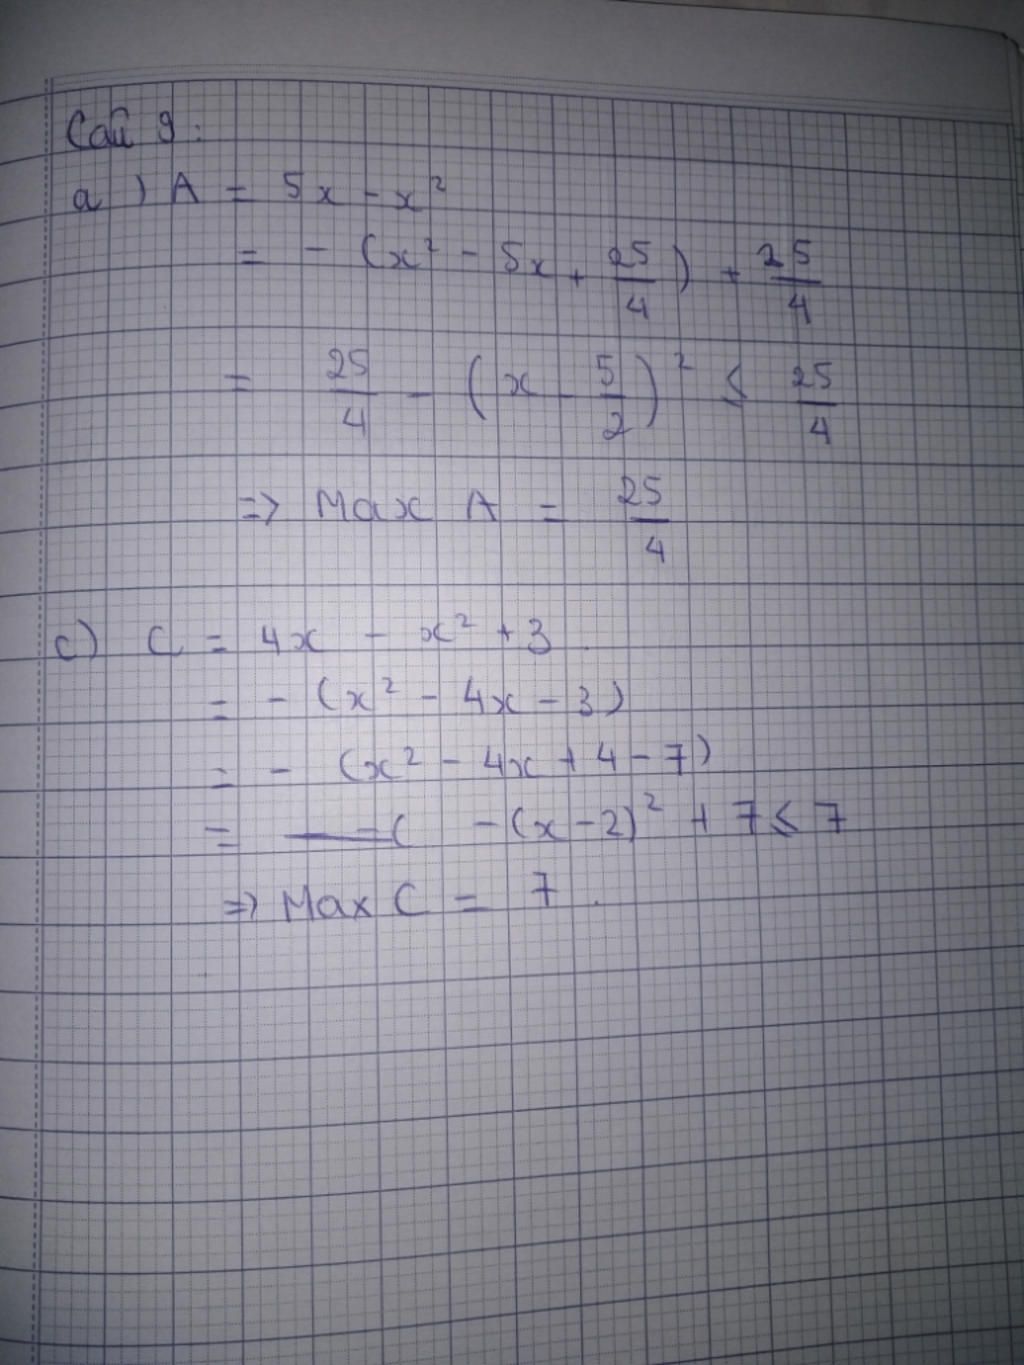 Câu 9:
a) A = 5x - x²
= - (x² - 5x + 25/4) + 25/4
= 25/4 - (x - 5/2)² ≤ 25/4
=> Max A = 25/4
c) C = 4x - x² + 3
= - (x² - 4x - 3)
= - (x² - 4x + 4 - 7)
= - (x - 2)² + 7 ≤ 7
=> Max C = 7.